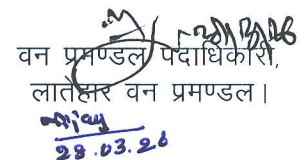 वन प्रमण्डल पदाधिकारी,
लातेहार वन प्रमण्डल।
28.03.26